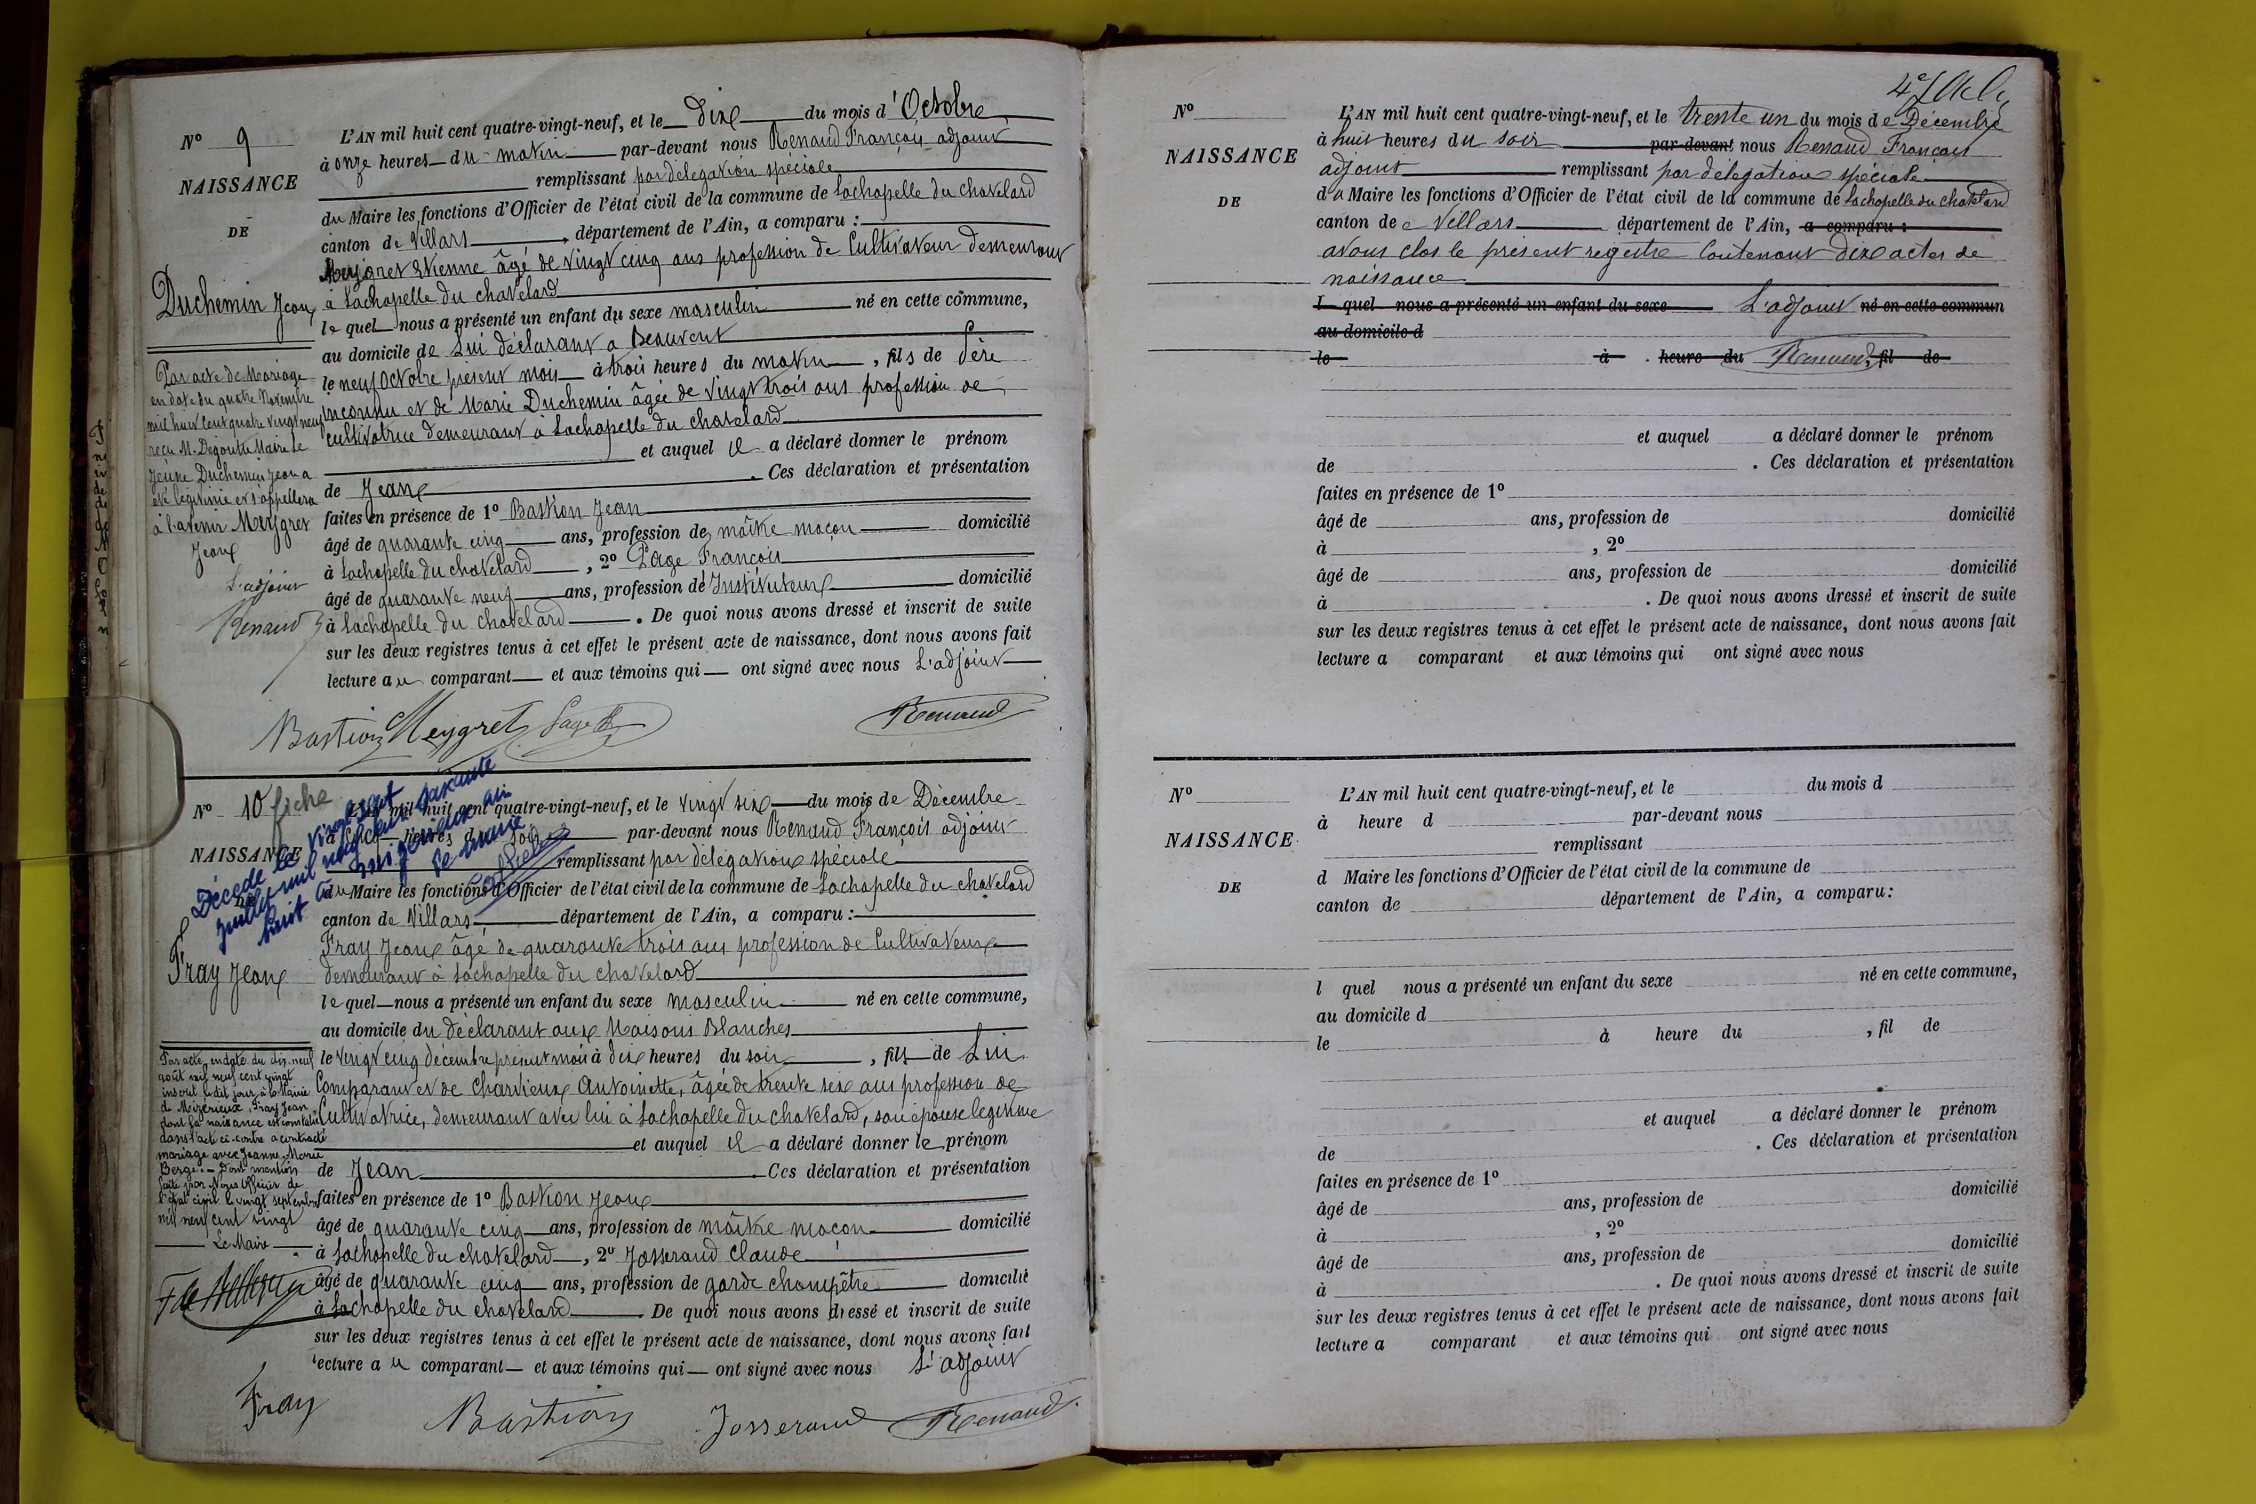 N° 9
NAISSANCE
DE
Duchemin Jean
Par acte de Mariage
en date du quatre Novembre
mil huit cent quatre vingt neuf
reçu M. Degoutte Maire le
jeune Duchemin Jean a
été légitimé et s'appellera
à l'avenir Meygret
Jean
L'adjoint
Renaud
L'AN mil huit cent quatre-vingt-neuf, et le dix du mois d'Octobre
à onze heures du matin par-devant nous Renaud François adjoint
remplissant par délégation spéciale
du Maire les fonctions d'Officier de l'état civil de la commune de Lachapelle du chatelard
canton de Villars, département de l'Ain, a comparu :
Meygret Etienne âgé de vingt cinq ans profession de Cultivateur demeurant
à Lachapelle du chatelard
le quel nous a présenté un enfant du sexe masculin né en cette commune,
au domicile de Lui déclarant a Beauvent
le neuf Octobre présent mois à trois heures du matin, fils de Père
inconnu et de Marie Duchemin âgée de vingt trois ans profession de
cultivatrice demeurant à Lachapelle du chatelard
et auquel il a déclaré donner le prénom
de Jean. Ces déclaration et présentation
faites en présence de 1° Bastion Jean
âgé de quarante cinq ans, profession de maître maçon domicilié
à Lachapelle du chatelard, 2° Page François
âgé de quarante neuf ans, profession d'Instituteur domicilié
à Lachapelle du chatelard. De quoi nous avons dressé et inscrit de suite
sur les deux registres tenus à cet effet le présent acte de naissance, dont nous avons fait
lecture au comparant et aux témoins qui ont signé avec nous L'adjoint
Bastion Meygret Page Renaud
N° 10 fiche
NAISSANCE
DE
Décédé le vingt sept
juillet mil neuf cent soixante
huit à
Le maire
Fray Jean
Par acte en date du dix-neuf
août mil neuf cent vingt
inscrit le dit jour à la Mairie
de Mizérieux, Fray Jean
dont la naissance est constatée
dans l'acte ci-contre a contracté
mariage avec Jeanne Marie
Berge. - Dont mention
faite par Nous Officier de
l'état civil le vingt septembre
mil neuf cent vingt
Le Maire
L'AN mil huit cent quatre-vingt-neuf, et le vingt six du mois de Décembre
à heures du soir par-devant nous Renaud François adjoint
remplissant par délégation spéciale
du Maire les fonctions d'Officier de l'état civil de la commune de Lachapelle du chatelard
canton de Villars, département de l'Ain, a comparu :
Fray Jean âgé de quarante trois ans profession de Cultivateur
demeurant à Lachapelle du chatelard
le quel nous a présenté un enfant du sexe masculin né en cette commune,
au domicile du déclarant aux Maisons Blanches
le vingt cinq décembre présent mois à dix heures du soir, fils de Lui
Comparant et de Charvieux Antoinette, âgée de trente six ans profession de
Cultivatrice, demeurant avec lui à Lachapelle du chatelard, son épouse légitime
et auquel il a déclaré donner le prénom
de Jean. Ces déclaration et présentation
faites en présence de 1° Bastion Jean
âgé de quarante cinq ans, profession de maître maçon domicilié
à Lachapelle du chatelard, 2° Josserand Claude
âgé de quarante cinq ans, profession de garde champêtre domicilié
à Lachapelle du chatelard. De quoi nous avons dressé et inscrit de suite
sur les deux registres tenus à cet effet le présent acte de naissance, dont nous avons fait
lecture au comparant et aux témoins qui ont signé avec nous L'adjoint
Fray Bastion Josserand Renaud
N°
NAISSANCE
DE
L'AN mil huit cent quatre-vingt-neuf, et le trente un du mois de Décembre
à huit heures du soir par-devant nous Renaud François
adjoint remplissant par délégation spéciale
du Maire les fonctions d'Officier de l'état civil de la commune de Lachapelle du chatelard
canton de Villars département de l'Ain, a comparu :
avons clos le présent registre Contenant dix actes de
naissance
l quel nous a présenté un enfant du sexe L'adjoint né en cette commun
au domicile d
le à heure du Renaud, fil de
et auquel a déclaré donner le prénom
de . Ces déclaration et présentation
faites en présence de 1°
âgé de ans, profession de domicilié
à , 2°
âgé de ans, profession de domicilié
à . De quoi nous avons dressé et inscrit de suite
sur les deux registres tenus à cet effet le présent acte de naissance, dont nous avons fait
lecture a comparant et aux témoins qui ont signé avec nous
N°
NAISSANCE
DE
L'AN mil huit cent quatre-vingt-neuf, et le du mois d
à heure d par-devant nous
remplissant
d Maire les fonctions d'Officier de l'état civil de la commune de
canton de département de l'Ain, a comparu:
l quel nous a présenté un enfant du sexe né en cette commune,
au domicile d
le à heure du , fil de
et auquel a déclaré donner le prénom
de . Ces déclaration et présentation
faites en présence de 1°
âgé de ans, profession de domicilié
à , 2°
âgé de ans, profession de domicilié
à . De quoi nous avons dressé et inscrit de suite
sur les deux registres tenus à cet effet le présent acte de naissance, dont nous avons fait
lecture a comparant et aux témoins qui ont signé avec nous